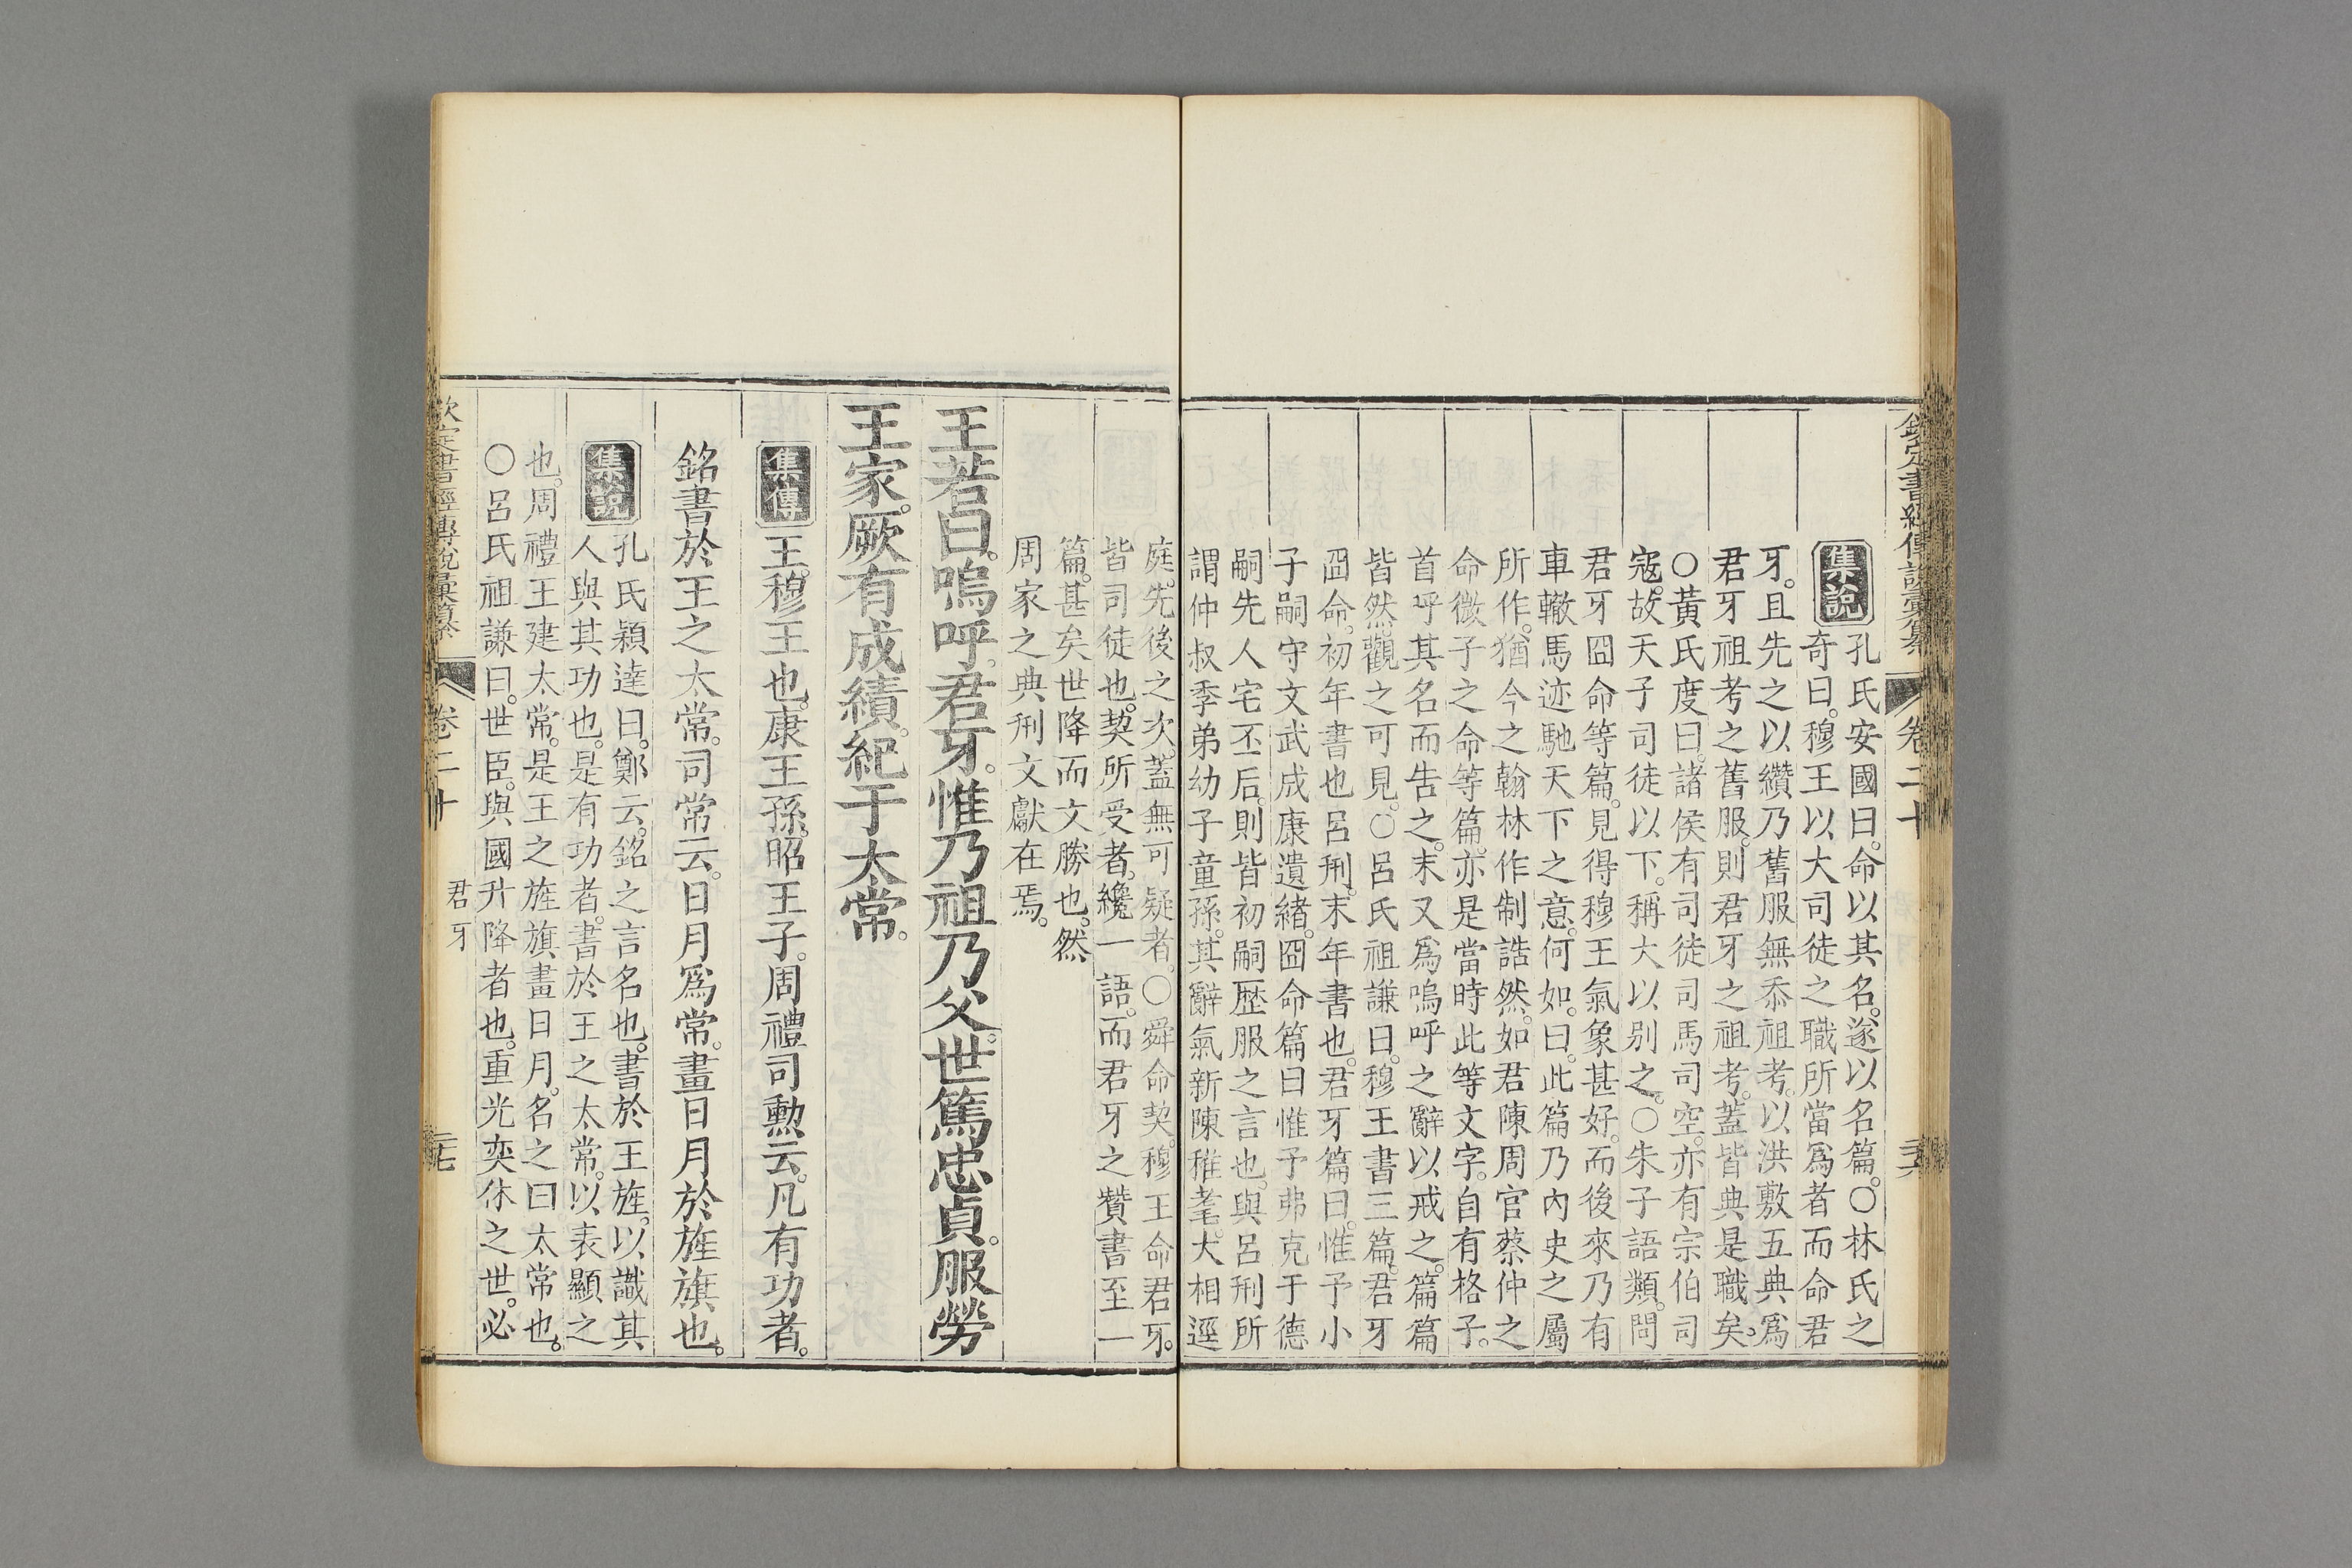 欽定書經傳說彙纂
卷二十
集說
孔氏安國曰。命以其名。遂以名篇。○林氏之
奇曰。穆王以大司徒之職所當爲者而命君
牙。且先之以纘乃舊服無忝祖考。以洪敷五典爲
君牙祖考之舊服。則君牙之祖考。蓋皆典是職矣。
○黃氏度曰。諸侯有司徒司馬司空。亦有宗伯司
寇。故天子司徒以下。稱大以别之。○朱子語類。問
君牙囧命等篇。見得穆王氣象甚好。而後來乃有
車轍馬迹馳天下之意。何如。曰。此篇乃內史之屬
所作。猶今之翰林作制誥然。如君陳周官蔡仲之
命微子之命等篇。亦是當時此等文字。自有格子。
首呼其名而告之。末又爲嗚呼之辭以戒之。篇篇
皆然。觀之可見。○呂氏祖謙曰。穆王書三篇。君牙
囧命。初年書也。呂刑。末年書也。君牙篇曰。惟予小
子嗣守文武成康遺緒。囧命篇曰惟予弗克于德
嗣先人宅丕后。則皆初嗣歷服之言也。與呂刑所
謂仲叔季弟幼子童孫。其辭氣新陳稚耄。大相逕
庭。先後之次。蓋無可疑者。○舜命契。穆王命君牙。
皆司徒也。契所受者。纔一語。而君牙之贊書至一
篇。甚矣世降而文勝也。然
周家之典刑文獻在焉。
王若曰。嗚呼。君牙。惟乃祖乃父。世篤忠貞。服勞
王家。厥有成績。紀于太常。
集傳
王。穆王也。康王孫。昭王子。周禮司勳云。凡有功者。
銘書於王之太常。司常云。日月爲常。畫日月於旌旗也。
集說
孔氏穎達曰。鄭云。銘之言名也。書於王旌。以識其
人與其功也。是有功者。書於王之太常。以表顯之
也。周禮王建太常。是王之旌旗畫日月。名之曰太常也。
○呂氏祖謙曰。世臣。與國升降者也。重光奕休之世。必
欽定書經傳說彙纂
卷二十
君牙